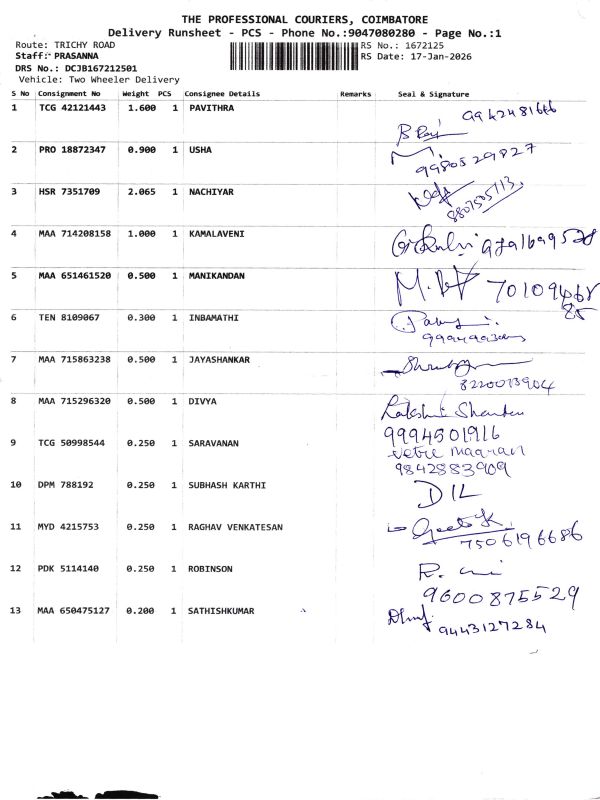 THE PROFESSIONAL COURIERS, COIMBATORE
Delivery Runsheet - PCS - Phone No.:9047080280 - Page No.:1
Route: TRICHY ROAD RS No.: 1672125
Staff: PRASANNA RS Date: 17-Jan-2026
DRS No.: DCJB167212501
Vehicle: Two Wheeler Delivery
S No Consignment No Weight PCS Consignee Details Remarks Seal & Signature
1 TCG 42121443 1.600 1 PAVITHRA
2 PRO 18872347 0.900 1 USHA 9980529827
3 HSR 7351709 2.065 1 NACHIYAR
4 MAA 714208158 1.000 1 KAMALAVENI
5 MAA 651461520 0.500 1 MANIKANDAN 70109468
85
6 TEN 8109067 0.300 1 INBAMATHI
7 MAA 715863238 0.500 1 JAYASHANKAR
8220073904
8 MAA 715296320 0.500 1 DIVYA Lakshmi
9994501916
9 TCG 50998544 0.250 1 SARAVANAN
9842883909
10 DPM 788192 0.250 1 SUBHASH KARTHI DIL
11 MYD 4215753 0.250 1 RAGHAV VENKATESAN Geetha K.
7506196686
12 PDK 5114140 0.250 1 ROBINSON
9600875529
13 MAA 650475127 0.200 1 SATHISHKUMAR
9443127284